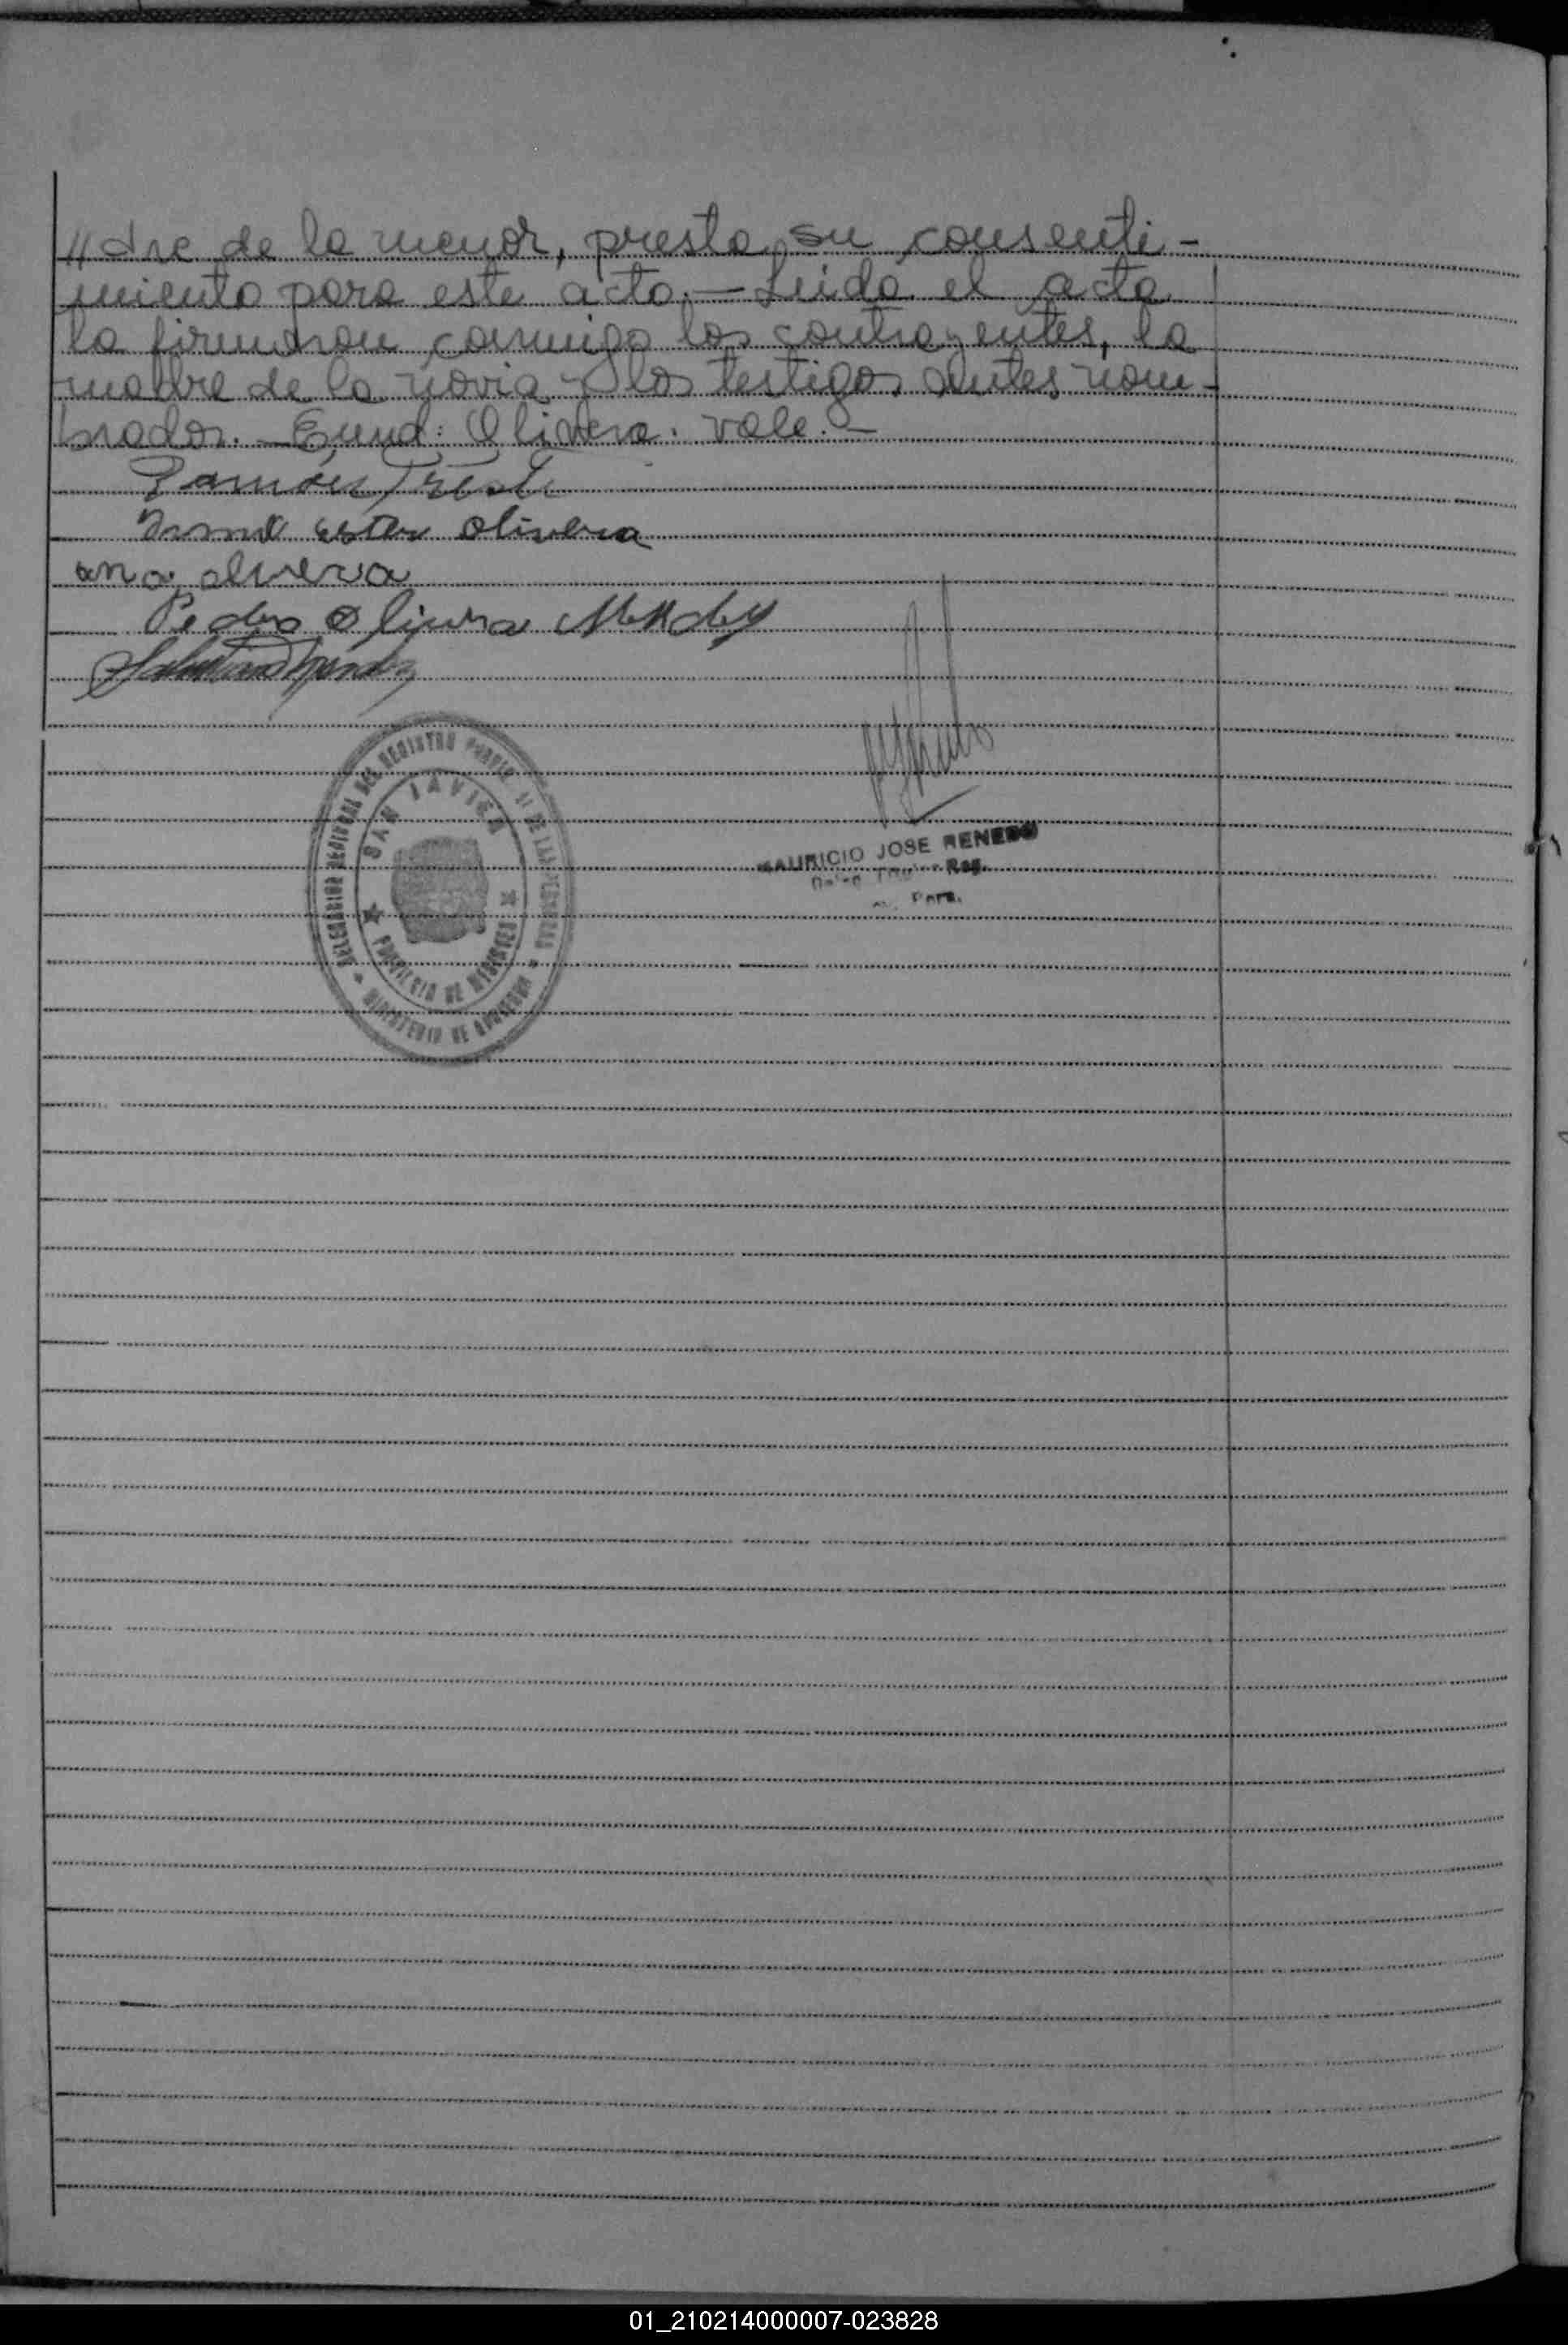 //dre de la menor, presta su consenti-
miento para este acto.— Leída el acta
la firmaron conmigo los contrayentes, la
madre de la novia y los testigos antes nom-
brados.— Enmd: Olivera. Vale.—
Ramón
Irma Ester Olivera
ana olivera
Pedro Olivera Mendez
Mendez
DELEGACION REGIONAL DEL REGISTRO PUBLICO DE LAS PERSONAS
SAN JAVIER
PROVINCIA DE MISIONES
MINISTERIO DE
MAURICIO JOSE RENEDO
Reg.
Pers.
01_210214000007-023828